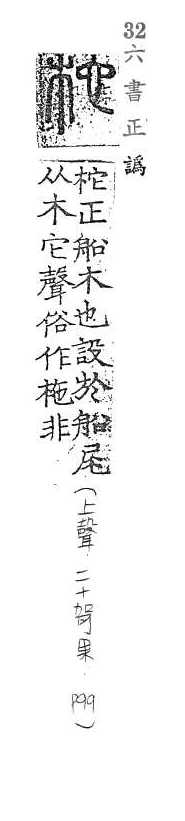 32六書正譌
柁
柁正船木也設於船尾
从木它聲俗作柂非
（上聲．二十哿果．P99）